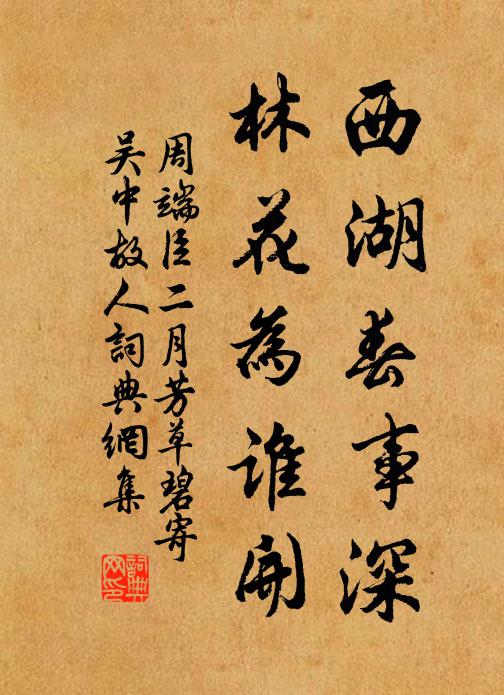 西湖春事深
林花為誰開
周端臣二月芳草碧寄
吴中故人詞典網集
詞典网印